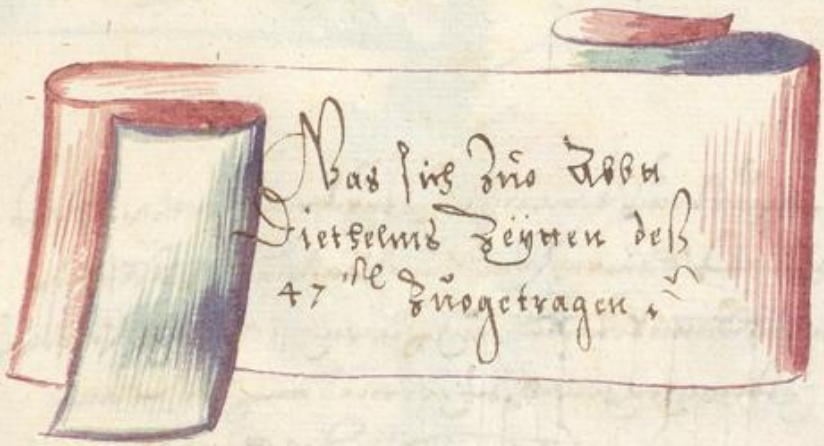 Was sich zůo Abbt
Diethelms Zeÿtten deß
47 zůogetragen.